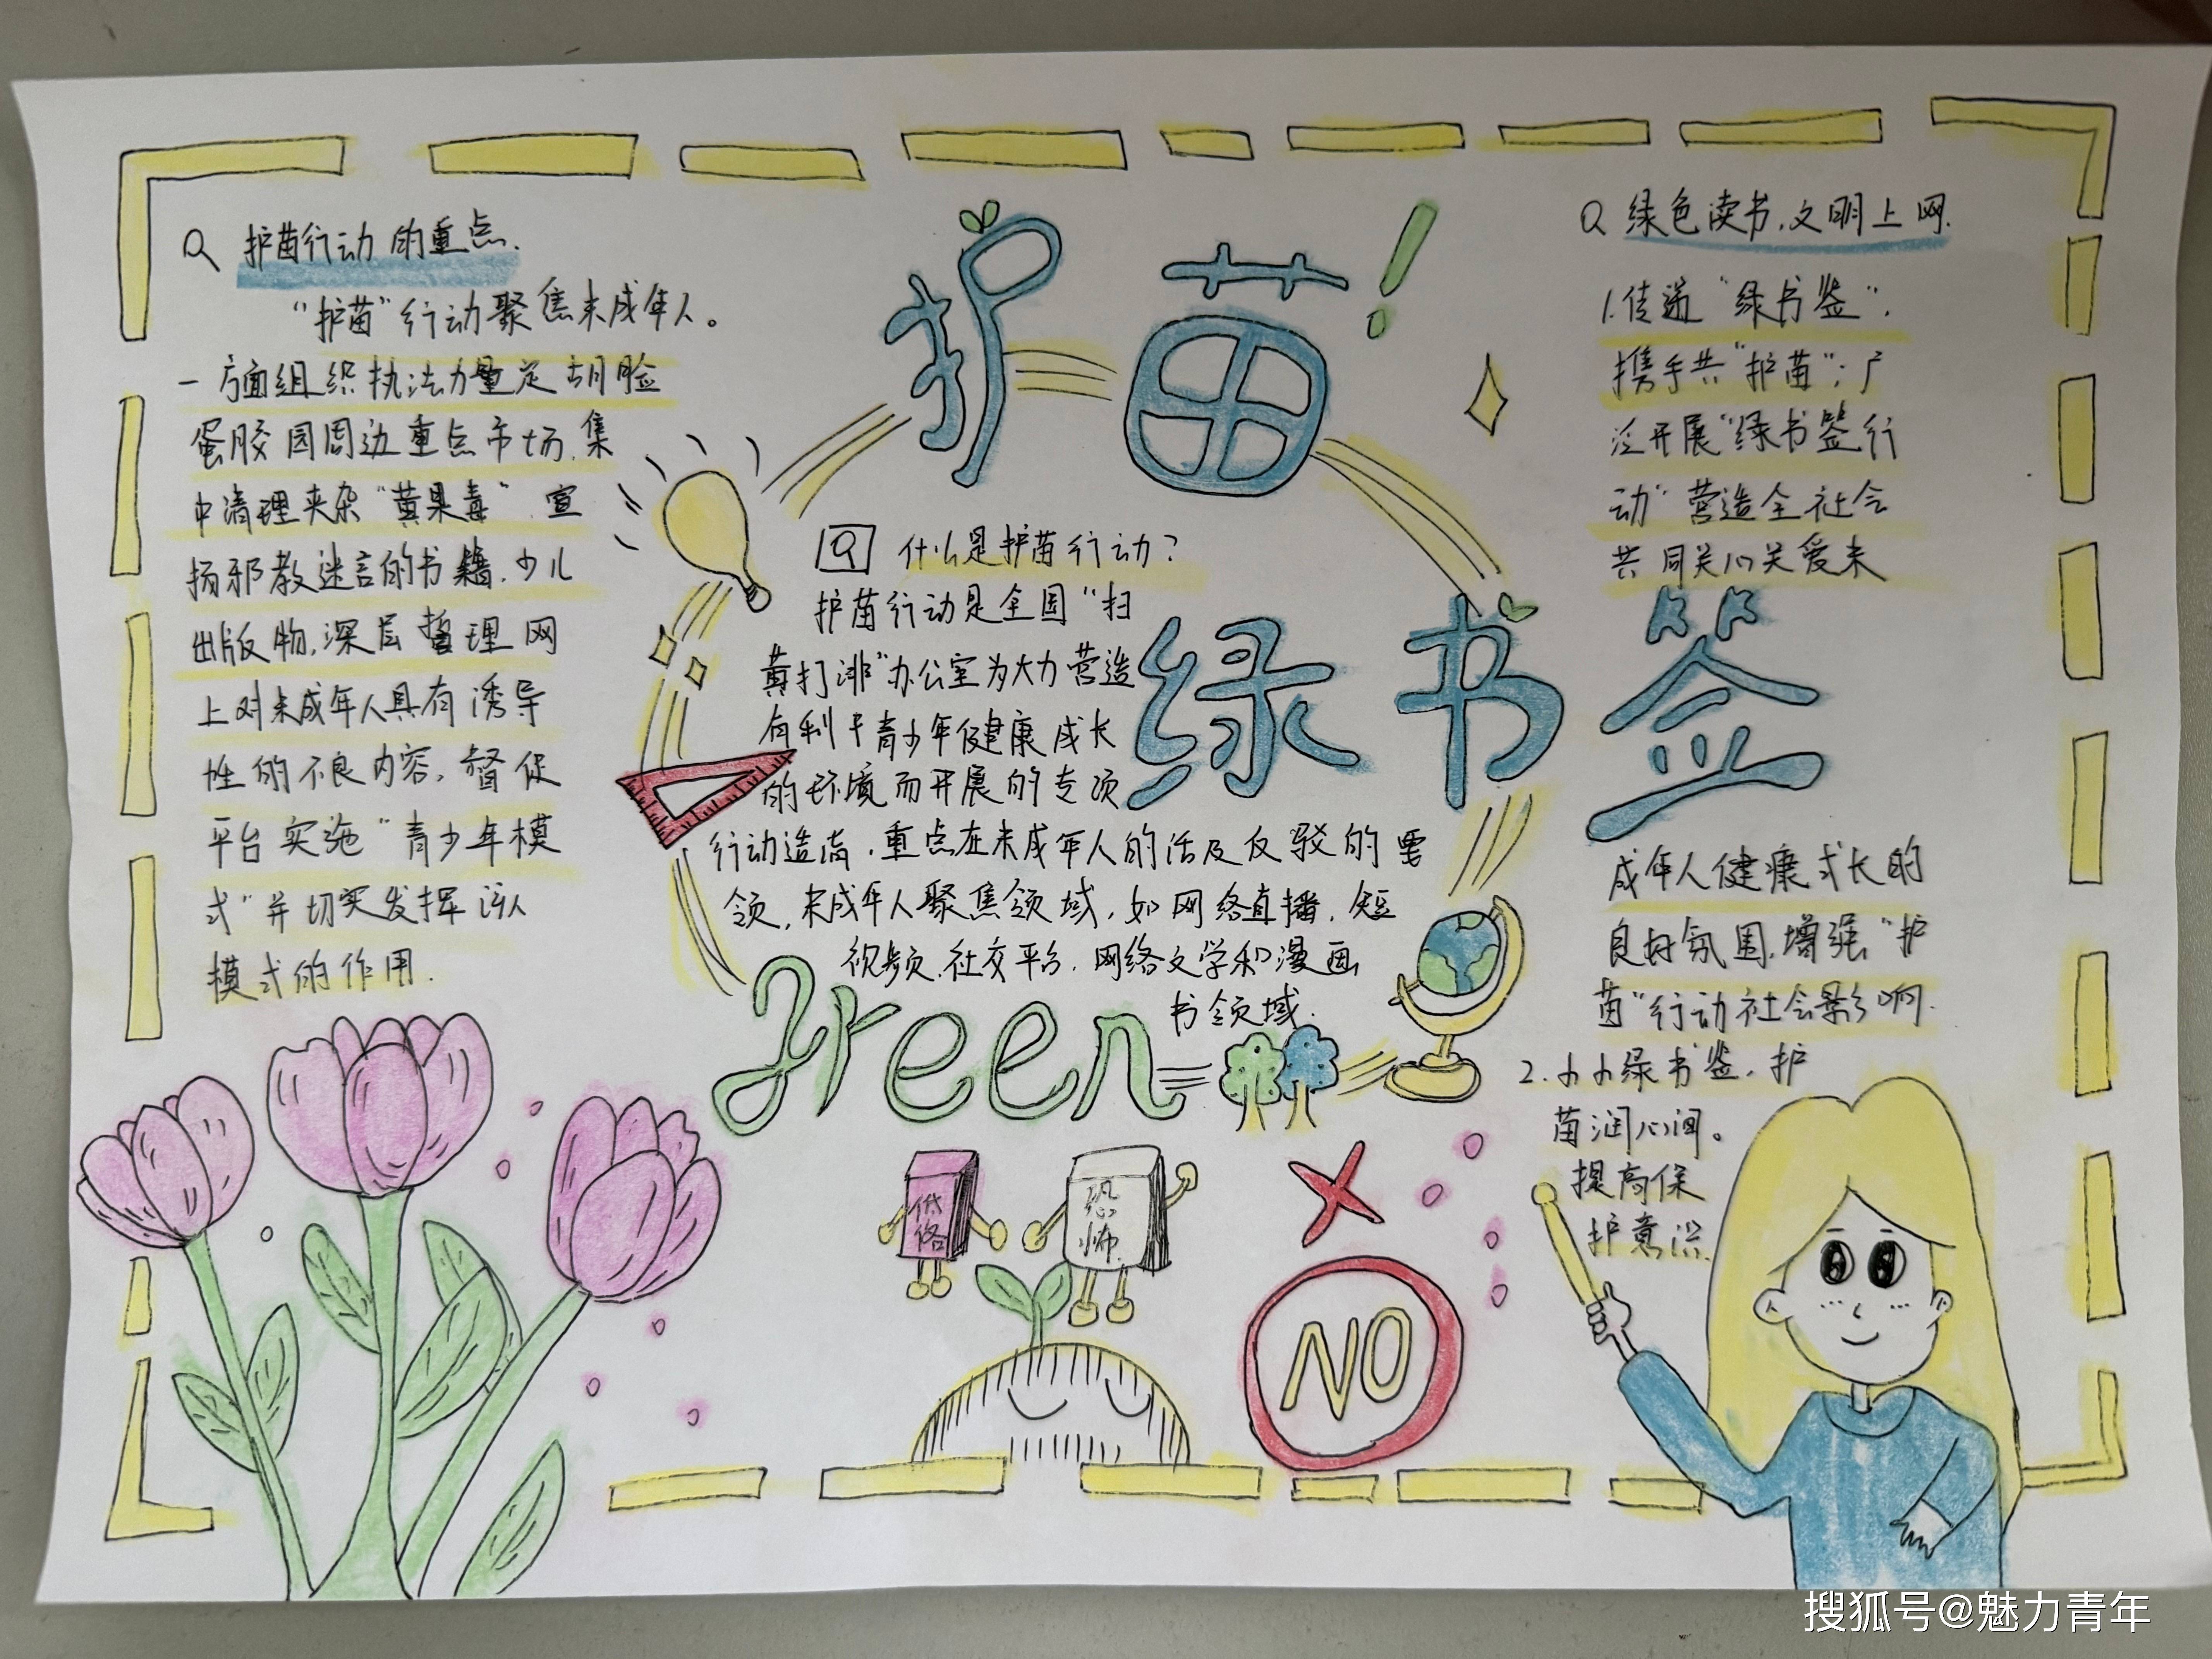 护苗！
绿书签
Green
Q 护苗行动的重点.
“护苗”行动聚焦未成年人。
一方面组织执法力量定胡脸
蛋胶园周边重点市场.集
中清理夹杂“黄果毒”.宣
扬邪教迷言的书籍.少儿
出版物,深层理网
上对未成年人具有诱导
性的不良内容,督促
平台实施“青少年模
式”并切实发挥该
模式的作用.
Q 什么是护苗行动?
护苗行动是全国“扫
黄打非”办公室为大力营造
有利于青少年健康成长
的环境而开展的专项
行动造高.重点在未成年人的活及反驳的要
领,未成年人聚焦领域,如网络直播.短
视频.社交平台.网络文学和漫画
书领域.
Q 绿色读书.文明上网.
1.传递“绿书签”.
携手共“护苗”;广
泛开展“绿书签行
动”营造全社会
共同关心关爱未
成年人健康成长的
良好氛围.增强“护
苗”行动社会影响.
2.小小绿书签.护
苗润心间。
提高保
护意识.
低俗
恐怖.
NO
搜狐号@魅力青年